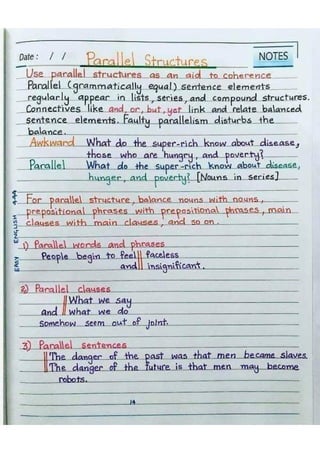 Date: / / Parallel Structures NOTES
Use parallel structures as an aid to coherence
Parallel (grammatically equal) sentence elements
regularly appear in lists, series, and compound structures.
Connectives like and, or, but, yet link and relate balanced
sentence elements. Faulty parallelism disturbs the
balance.
Awkward What do the super-rich know about disease,
those who are hungry, and poverty?
Parallel What do the super-rich know about disease,
hunger, and poverty? [Nouns in series]
For parallel structure, balance nouns with nouns,
prepositional phrases with prepositional phrases, main
clauses with main clauses, and so on.
1) Parallel words and phrases
People begin to feel || faceless
and || insignificant.
2) Parallel clauses
|| What we say
and || what we do
somehow seem out of joint.
3) Parallel sentences
|| The danger of the past was that men became slaves.
|| The danger of the future is that men may become
robots.
EASY ENGLISH